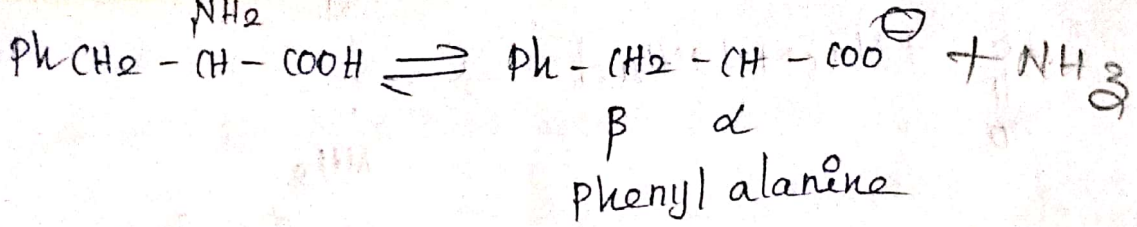 NH2
Ph CH2 - CH - COOH ⇌ Ph - CH2 - CH - COO⊖ + NH3
β α
Phenyl alanine